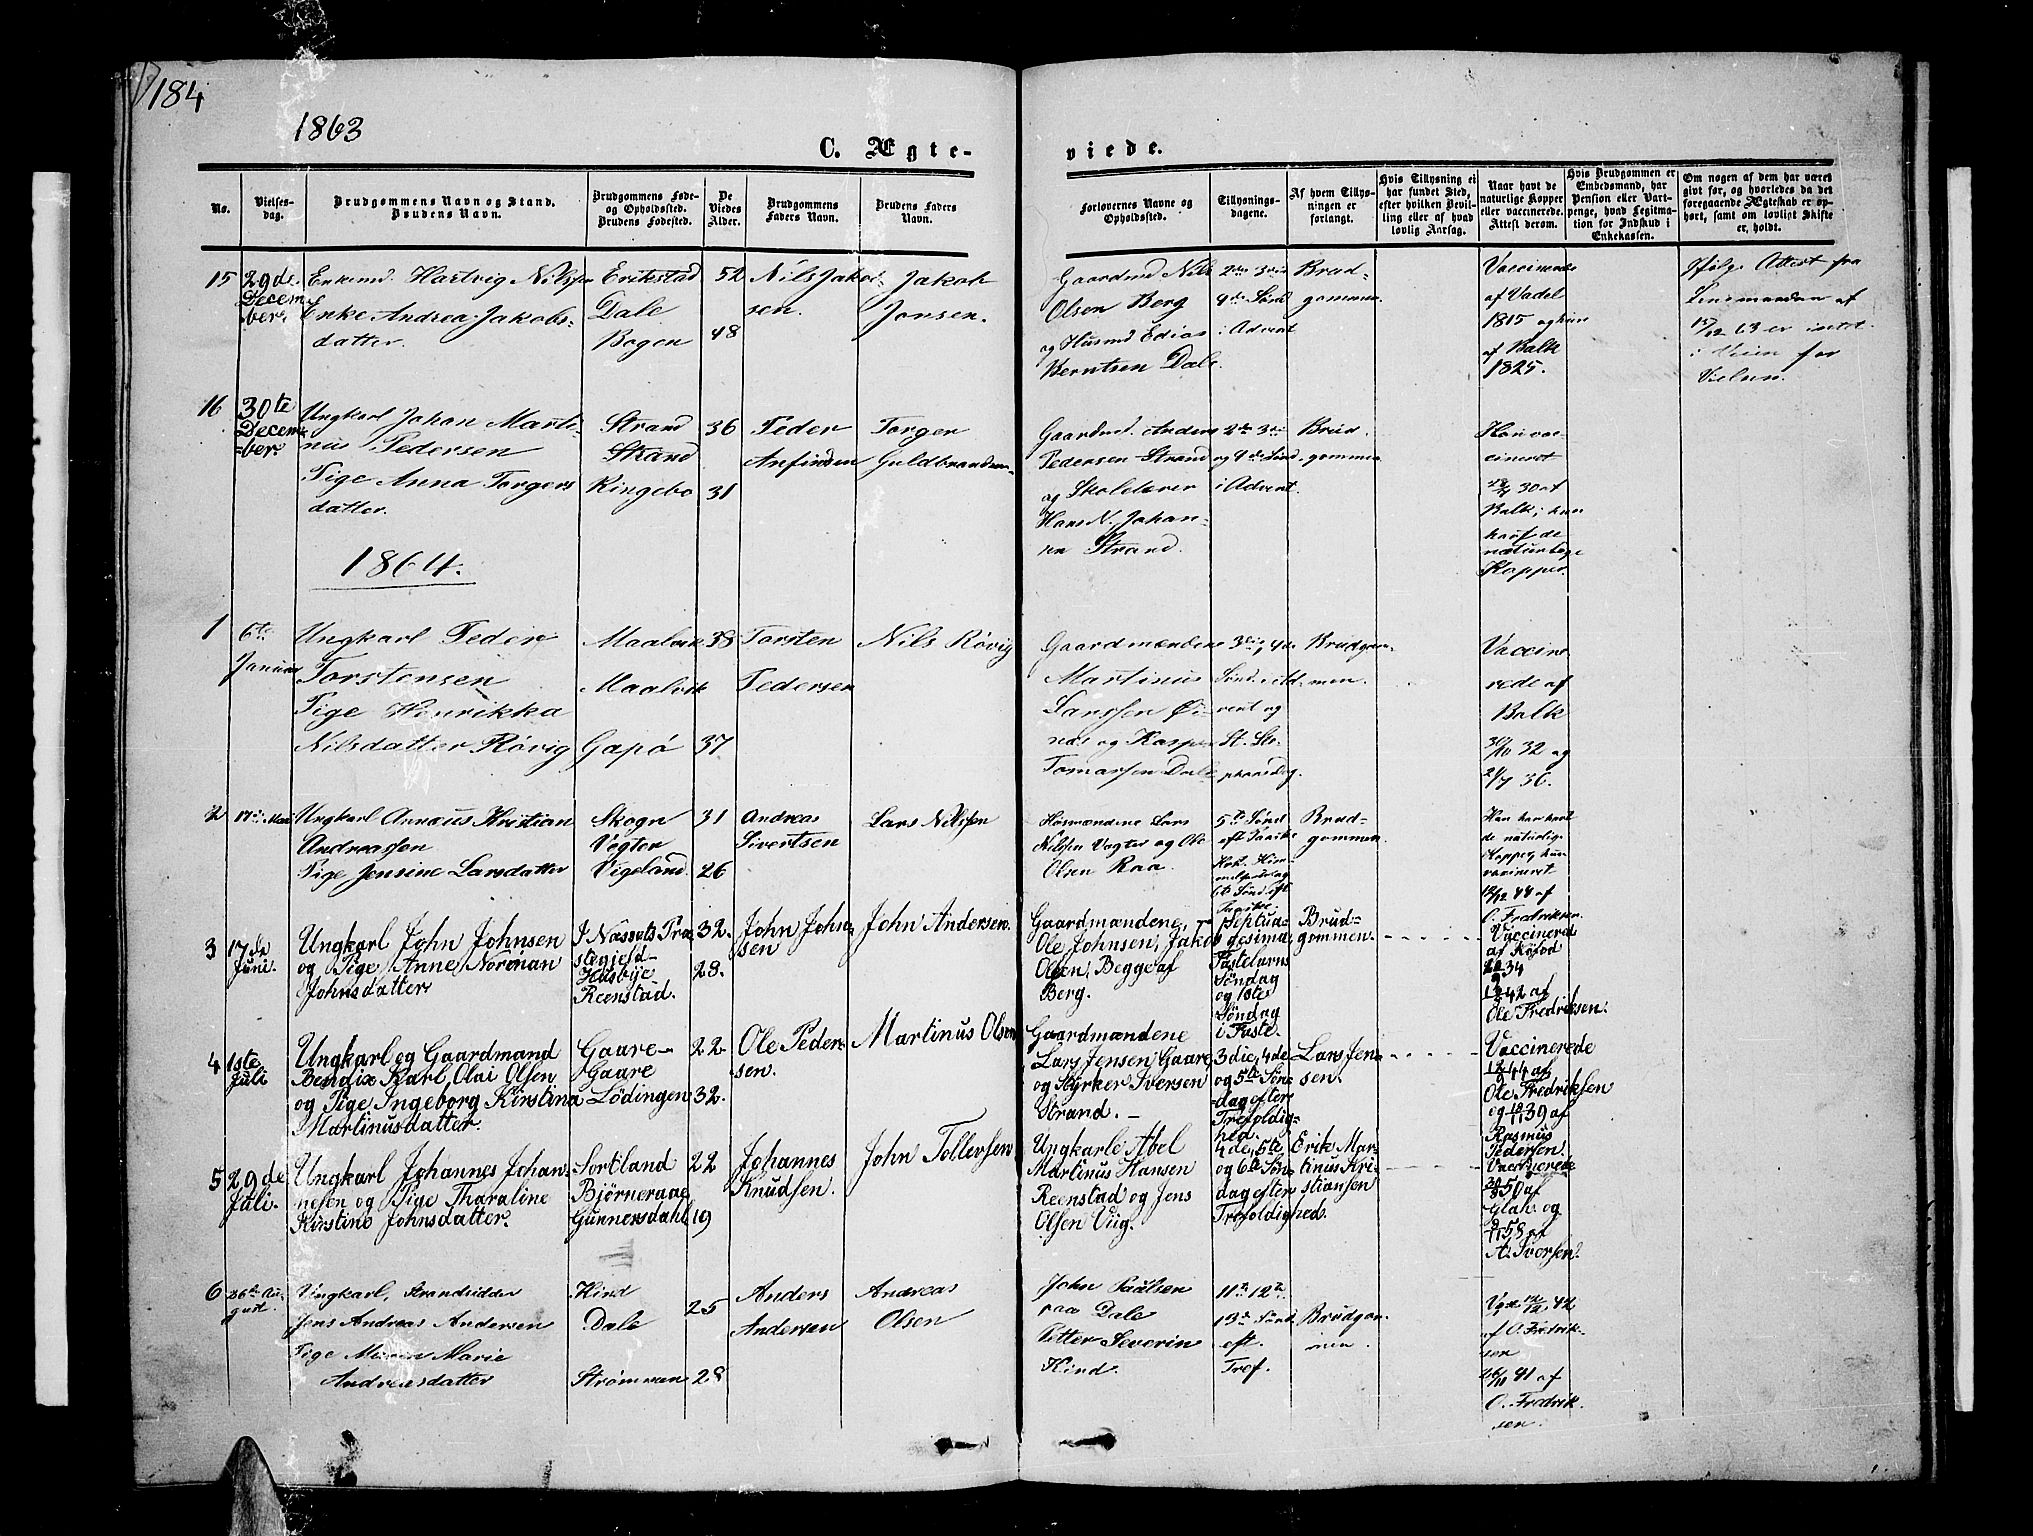 184
1863
C. Ægte-
viede.
No.
Vielses-
dag.
Brudgommens Navn og Stand.
Brudens Navn.
Brudgommens Føde-
og Opholdssted.
Brudens Fødested.
De
Viedes
Alder.
Brudgommens
Faders Navn.
Brudens Faders
Navn.
Forlovernes Navne og
Opholdssted.
Tillysnings-
dagene.
Af hvem Tillys-
ningen er
forlangt.
Hvis Tillysning ei
har fundet Sted,
efter hvilken Bevil-
ling eller af hvad
lovlig Aarsag.
Naar havt de
naturlige Kopper
eller vaccinerede.
Attest derom.
Hvis Brudgommen er
Embedsmand, har
Pension eller Vart-
penge, hvad Legitima-
tion for Indskud i
Enkekassen.
Om nogen af dem har været
gift før, og hvorledes da det
foregaaende Ægteskab er op-
hørt, samt om lovligt Skifte
er, holdt.
15
29de
Decem-
ber.
Enkemd. Hartvig Nilssen
Enke Andrea Jakobs-
datter.
Erikstad
Dale
Bogen
52
48
Nils Jakob-
sen.
Jakob
Jonsen.
Gaardmd Nils
Olsen Berg
og Husmd Edias
Berntsen Dale.
2den 3die
4de Sønd
i Advent
Brud-
gommen.
Vaccinerede
af Vadel
1815 og hun
af Balk
1825.
Ifølge Attest fra
Lensmanden af
15/12 63 er intet
i Veien for
Vielsen.
16
30te
Decem-
ber.
Ungkarl Johan Marti-
nus Pedersen
Pige Anna Torgers
datter.
Strand
Strand
Ringebo
36
31
Peder
Anfinsen
Torger
Guldbrandsen
Gaardmd. Anders
Pedersen Strand
og Skolelærer
Hans N. Johan-
sen Strand.
2den 3die
og 4de Sønd.
i Advent.
Brud-
gommen
Han vac-
cineret
30 af
Balk; hun
havt de
naturlige
Kopper.
1864.
1
6te
Januar
Ungkarl Peder
Torstensen
Pige Henrikka
Nilsdatter Røvig
Maalvik
Maalvik
Gapø
38
37
Torsten
Pedersen
Nils Røvig
Gaardmændene
Martinus
Larssen Øi-
næs og Kasper
Tomassen Dale
3die, 4de
Sønd. i Ad-
vent og
St. Ste-
phansdag.
Brudgom-
men.
Vaccine-
rede af
Balk
30/10 32 og
2/7 36.
2
17de Mai
Ungkarl Annæus Kristian
Andreassen
Pige Jensine Larsdatter
Skogn
Vegter
Vigeland.
31
26
Andreas
Sivertsen
Lars Nilssen
Husmændene Lars
Nilssen Vægter og Ole
Olsen Raa.
5te Sønd
eft. Paaske
6te Sønd. eft
Paaske.
Brud-
gommen.
Han har havt
de naturlige
Kopper, hun
vaccineret
12/12 44 af
O. Fredriksen.
3
17de
Juni.
Ungkarl John Johnsen
og Pige Anne Norman
Johnsdatter
I Næssets Præ-
stegjeld-
Husbye
Reenstad.
32.
28.
John John-
sen
John Andersen.
Gaardmændene,
Ole Johnsen, Jakob
Olsen, Begge af
Berg.
Septua-
gesima,
Fastelavns
Søndag
og 1ste
Søndag
i Faste.
Brud-
gommen.
Vaccinerede
af Kofod
34
42 af
Ole Fredriksen.
4
1ste
Juli
Ungkarl og Gaardmand
Bendix Karl Olai Olsen
og Pige Ingeborg Kirstina
Martinusdatter.
Gaare-
Gaare
Lödingen
22.
32.
Ole Peder-
sen.
Martinus Olsen
Gaardmændene
Lars Jensen Gaare,
og Styrker Iversen
Strand.
3die, 4de
og 5te Søn-
dag efter
Trefoldig-
hed.
Lars Jen-
sen.
Vaccinerede
44 af
Ole Fredriksen
og 39 af
Rasmus
Pedersen.
5
29de
Juli.
Ungkarl Johannes Johan-
nesen og Pige Tharaline
Kirstine Johnsdatter.
Sortland
Björneraae
Gunnersdahl
22
19
Johannes
Knudsen.
John Tollevsen
Ungkarle Abel
Martinus Hansen
Reenstad og Jens
Olsen Viig.
4de, 5te
og 6te Søn-
dag efter
Trefoldighed.
Erik Mar-
tinus Kri-
stiansen
Vaccinerede
50 af
Glah. og
58 af
A. Iversen.
6
26de Au-
gust.
Ungkarl, Strandsidder
Jens Andreas Andersen
Pige Maren Marie
Andreasdatter
Hind
Dale
Strømmen
25
28
Anders
Andersen
Andreas
Olsen
John Paulsen
paa Dale
Petter Severin
Hind.
11te 12te
13de Sønd
eft.
Tref.
Brudgom-
men.
Vac. 12/12 42
af O. Fredrik-
sen
26/11 41 af
O. Fredrik-
sen.